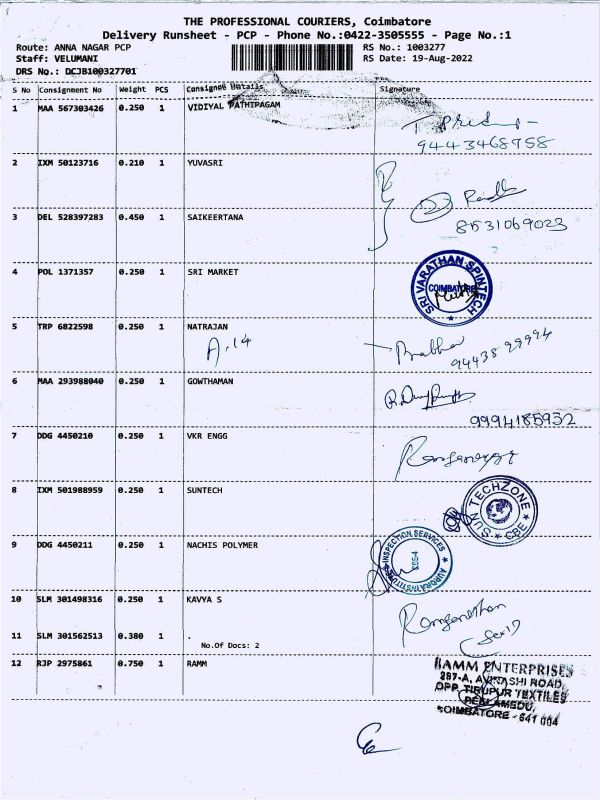 THE PROFESSIONAL COURIERS, Coimbatore
Delivery Runsheet - PCP - Phone No.:0422-3505555 - Page No.:1
Route: ANNA NAGAR PCP RS No.: 1003277
Staff: VELUMANI RS Date: 19-Aug-2022
DRS No.: DCJB100327701
S No Consignment No Weight PCS Consignee Details Signature
1 MAA 567303426 0.250 1 VIDIYAL PATHIPAGAM
9443468958
2 IXM 50123716 0.210 1 YUVASRI
8531069023
3 DEL 528397283 0.450 1 SAIKEERTANA
4 POL 1371357 0.250 1 SRI MARKET
SRI VARATHAN SPINTECH
COIMBATORE
5 TRP 6822598 0.250 1 NATRAJAN
A.14 Prabha
94438 99994
6 MAA 293988040 0.250 1 GOWTHAMAN
9994185932
7 DDG 4450210 0.250 1 VKR ENGG
8 IXM 501988959 0.250 1 SUNTECH
SUN TECHZONE
CBE
9 DDG 4450211 0.250 1 NACHIS POLYMER
INSPECTION SERVICES
10 SLM 301498316 0.250 1 KAVYA S
11 SLM 301562513 0.380 1 .
No.Of Docs: 2
12 RJP 2975861 0.750 1 RAMM
RAMM ENTERPRISES
287-A, AVINASHI ROAD,
OPP. TIRUPUR TEXTILES
PEELAMEDU,
COIMBATORE - 641 004